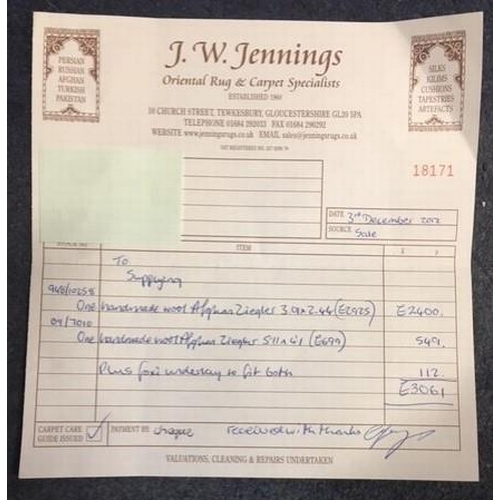 PERSIAN
RUSSIAN
AFGHAN
TURKISH
PAKISTAN
J. W. Jennings
Oriental Rug & Carpet Specialists
ESTABLISHED
SILKS
KILIMS
CUSHIONS
TAPESTRIES
ARTEFACTS
10 CHURCH STREET, TEWKESBURY, GLOUCESTERSHIRE GL20 5PA
TELEPHONE 01684 292033 FAX 01684 290292
WEBSITE www.jenningsrugs.co.uk EMAIL sales@jenningsrugs.co.uk
18171
DATE 3rd December 2012
SOURCE Sale
ITEM £ p
To
Supplying
One handmade wool Afghan Ziegler 3.01 x 2.44 (£2925) £2400.
04/7010
One handmade wool Afghan Ziegler 5'11 x 4'1 (£699) 549.
Plus underlay to fit both 112.
£3061
CARPET CARE
GUIDE ISSUED ✓ PAYMENT BY cheque received with thanks
VALUATIONS, CLEANING & REPAIRS UNDERTAKEN